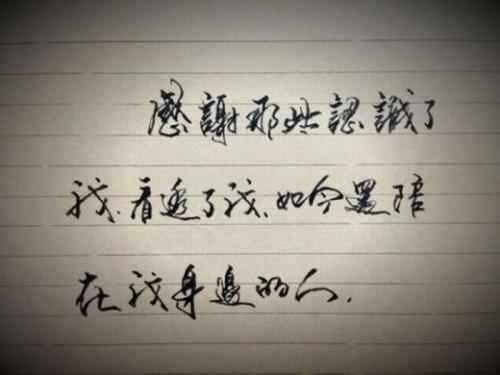 感謝那些認識了
我、看透了我、如今還陪
在我身邊的人.